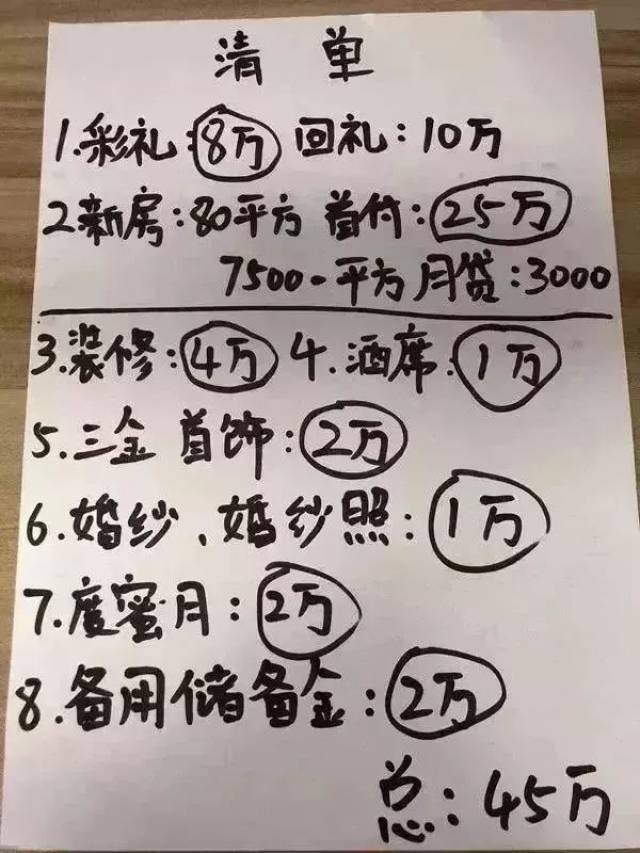 清单
1.彩礼:8万 回礼:10万
2.新房:80平方 首付:25万
7500-平方 月贷:3000
3.装修:4万 4.酒席:1万
5.三金 首饰:2万
6.婚纱、婚纱照:1万
7.度蜜月:2万
8.备用储备金:2万
总:45万